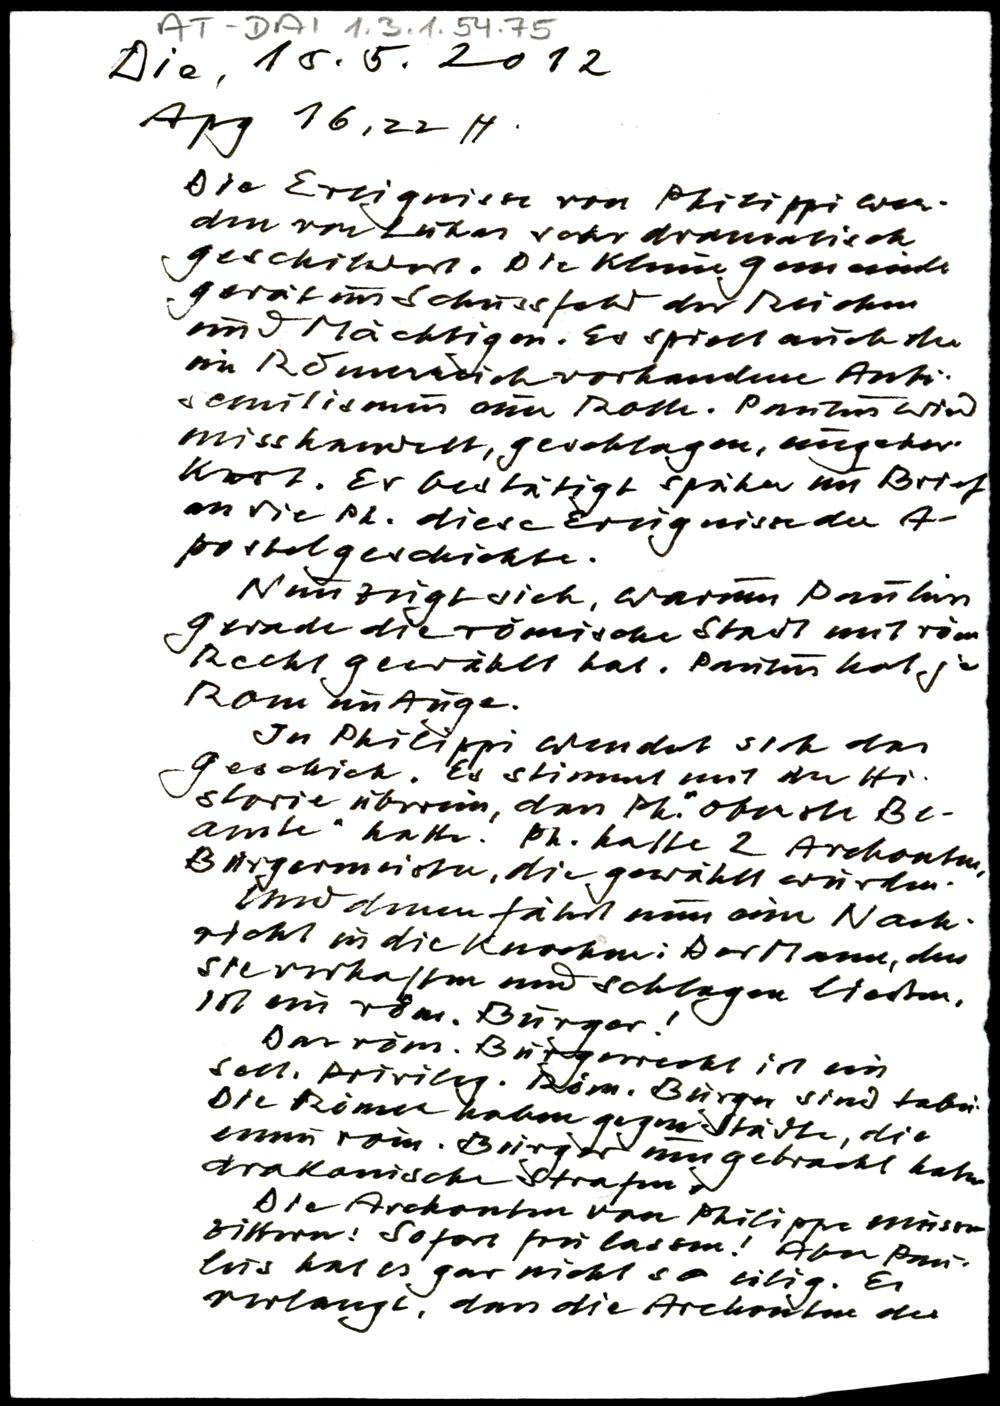 AT-DAI 1.3.1.54.75
Die, 15.5.2012
Apg 16,22 ff.
Die Ereignisse von Philippi wer-
den von Lukas sehr dramatisch
geschildert. Die kleine Gemeinde
gerät ins Schussfeld der Reichen
und Mächtigen. Es spielt auch der
im Römerreich vorhandene Anti-
semitismus eine Rolle. Paulus wird
misshandelt, geschlagen, eingeker-
kert. Er bestätigt später im Brief
an die Ph. diese Ereignisse der A-
postelgeschichte.
Nun zeigt sich, warum Paulus
gerade die römische Stadt mit röm
Recht gewählt hat. Paulus hat ja
Rom im Auge.
In Philippi wendet sich das
Geschick. Es stimmt mit der Hi-
storie überein, dass Ph. "oberste Be-
amte" hatte. Ph. hatte 2 Archonten,
Bürgermeister, die gewählt wurden.
Und denen fährt nun eine Nach-
richt in die Knochen: Der Mann, den
sie verhaften und schlagen liessen,
ist ein röm. Bürger!
Das röm. Bürgerrecht ist ein
selt. Privileg. Röm. Bürger sind tabu.
Die Römer haben gegen Städte, die
einen röm. Bürger umgebracht haben
drakonische Strafen
Die Archonten von Philippi müssen
zittern! Sofort frei lassen! Aber Pau-
lus hat es gar nicht so eilig. Er
verlangt, dass die Archonten der